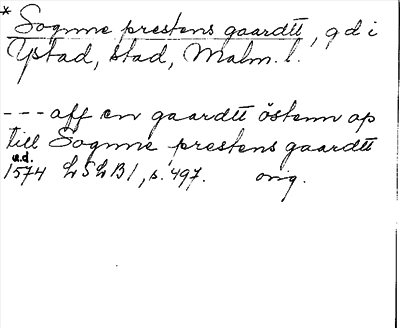 * Sognne prestens gaardtt, gd i
Ystad, stad, Malm. l.
--- aff en gaardtt östenn op
till Sognne prestens gaardtt
u.d.
1574 LSLB 1, s. 497. orig.